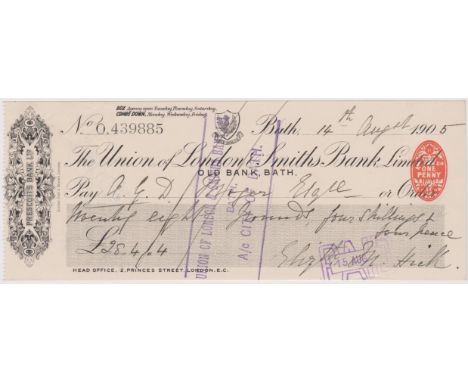 BOX Agency open Tuesday, Thursday, Saturday.
COMBE DOWN, Monday, Wednesday, Friday.
No O.439885 Bath, 14th August 1905
The Union of London & Smiths Bank, Limited.
OLD BANK, BATH.
Pay A. G. D. Esqre or Order
Twenty eight Pounds, four shillings &
four pence
£28.4.4
HEAD OFFICE, 2, PRINCES STREET, LONDON, E.C.
PRESCOTTS BANK LD
UNION OF LONDON
BATH.
A/c
BATH.
PAID
15 AUG
ONE
PENNY
Hick